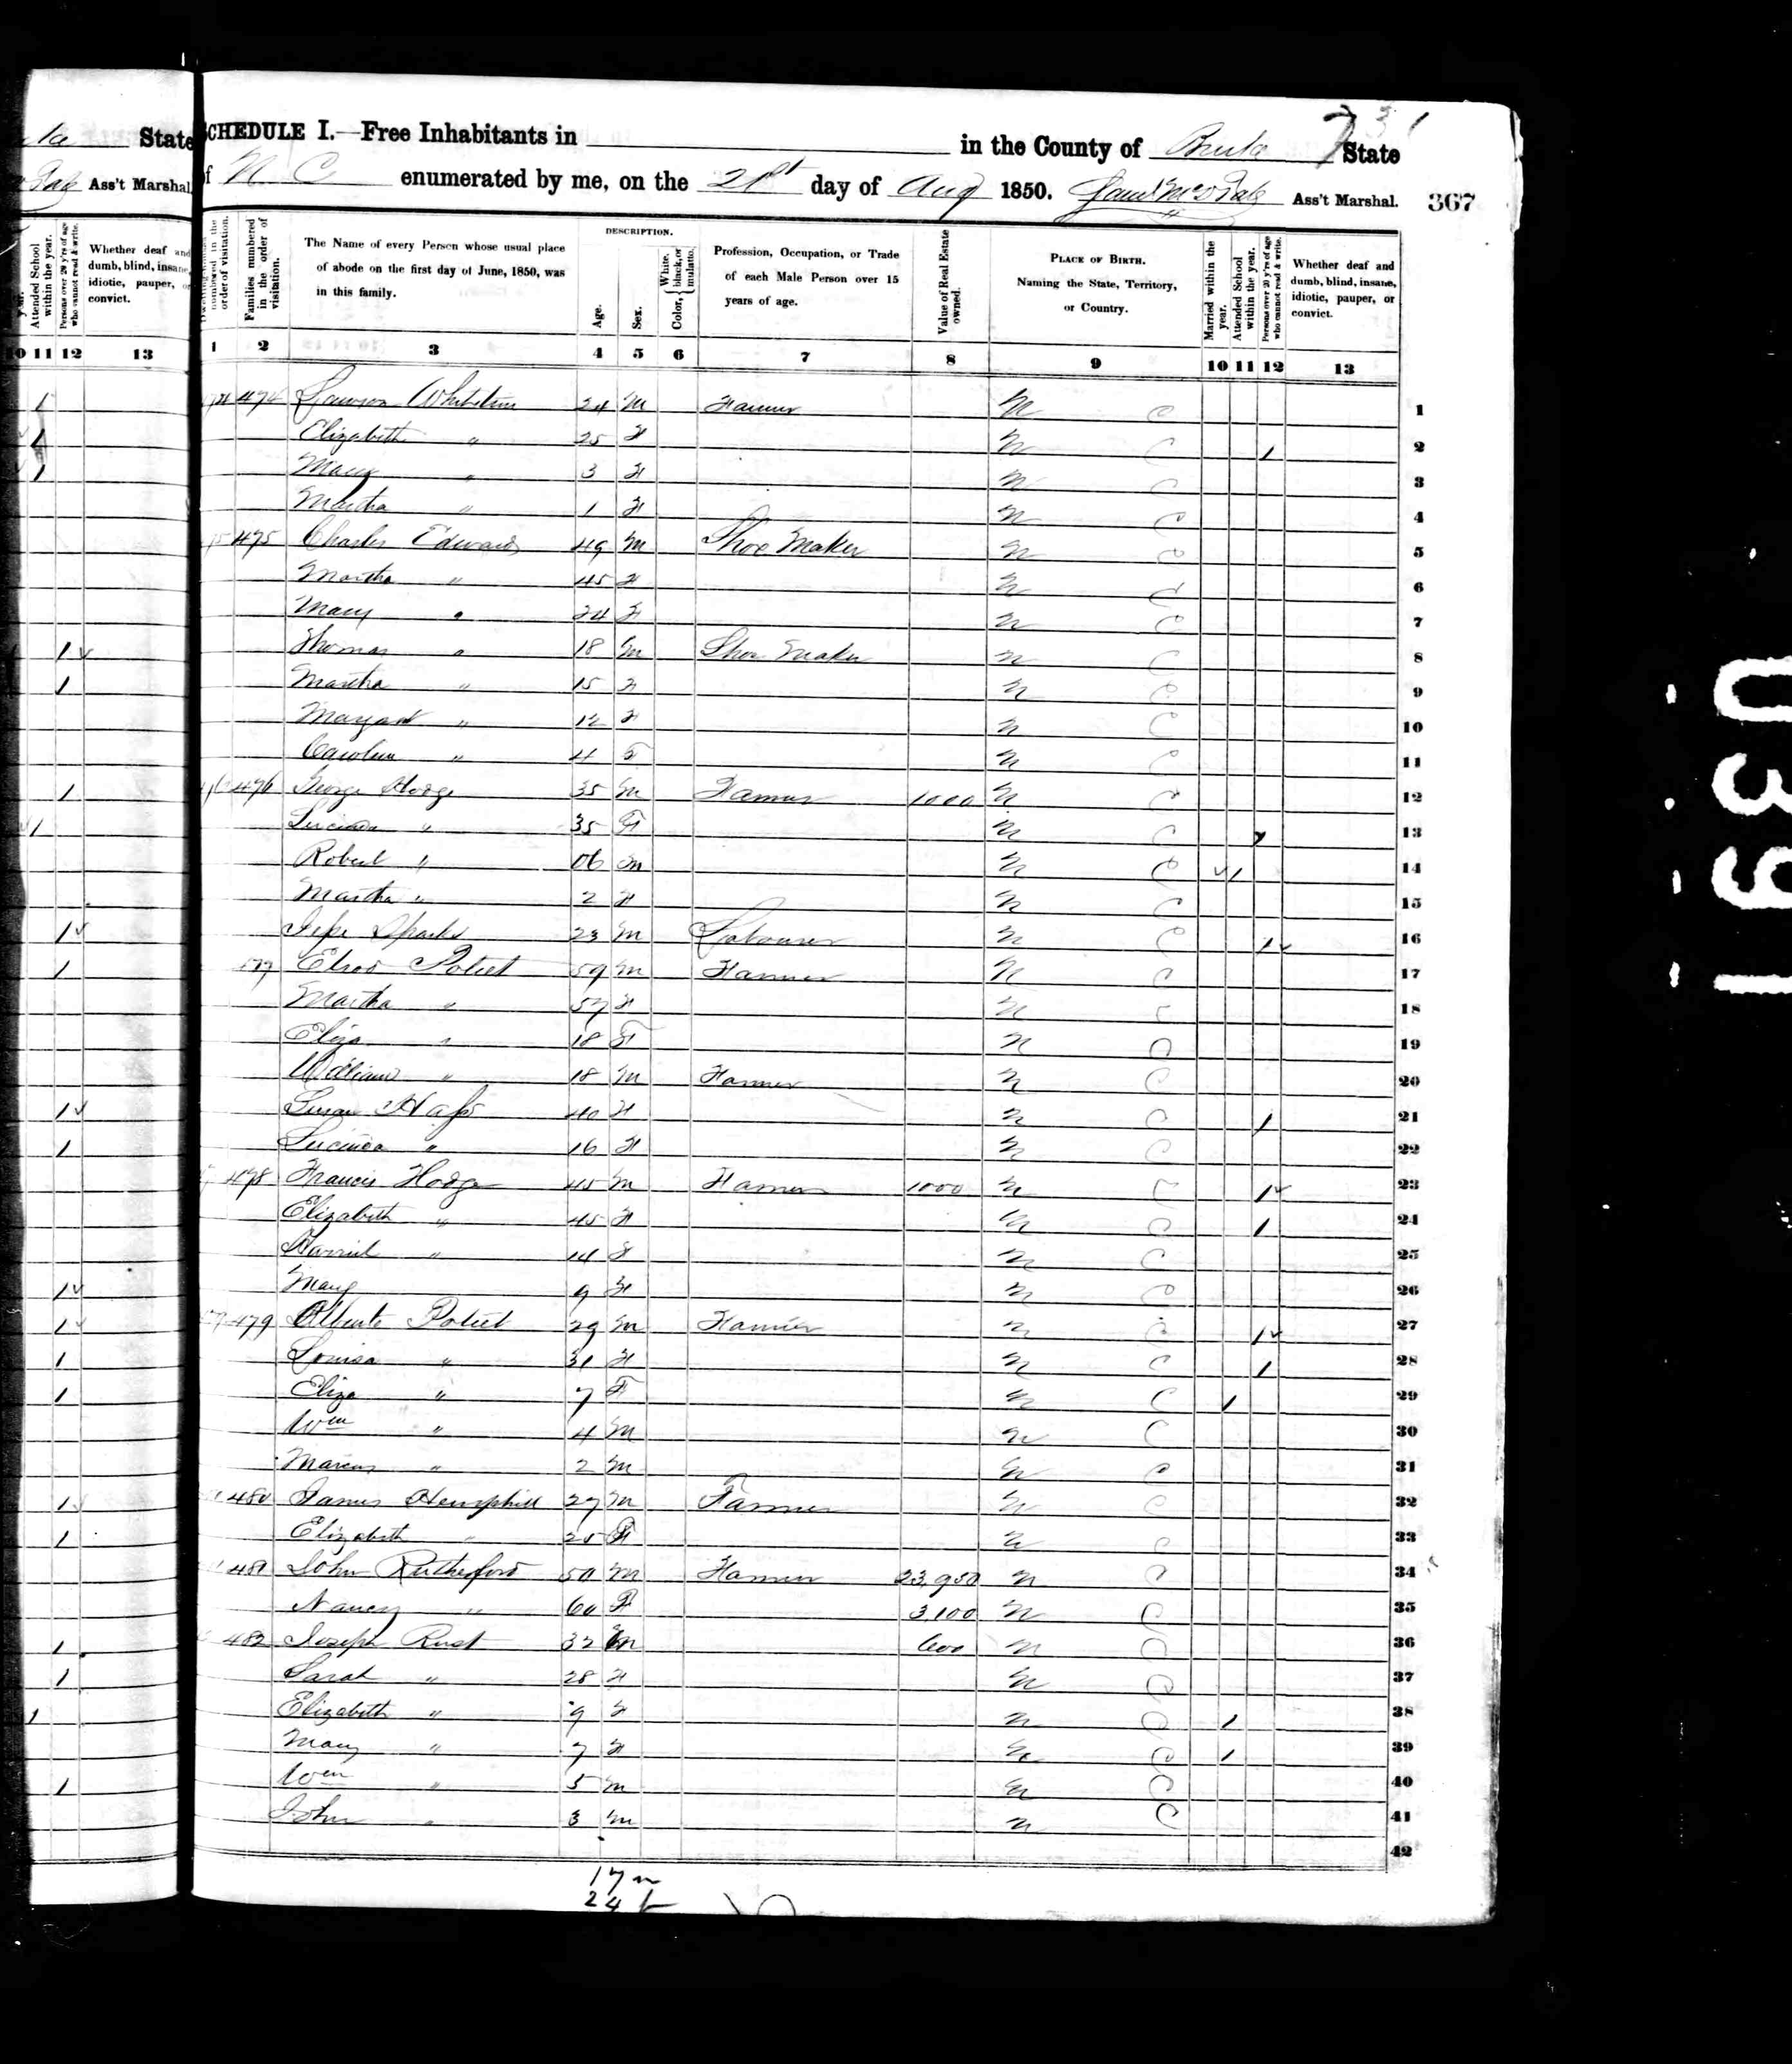 State
Ass't Marshal.
Attended School within the year.
Persons over 20 y'rs of age who cannot read & write.
Whether deaf and dumb, blind, insane, idiotic, pauper, or convict.
10 11 12 13
SCHEDULE I.—Free Inhabitants in in the County of Burke State
of N C enumerated by me, on the 21st day of Aug 1850. Ass't Marshal. 367
numbered in the order of visitation.
Families numbered in the order of visitation.
The Name of every Person whose usual place of abode on the first day of June, 1850, was in this family.
DESCRIPTION.
Age.
Sex.
Color, { White, black, or mulatto.
Profession, Occupation, or Trade of each Male Person over 15 years of age.
Value of Real Estate owned.
PLACE OF BIRTH. Naming the State, Territory, or Country.
Married within the year.
Attended School within the year.
Persons over 20 y'rs of age who cannot read & write.
Whether deaf and dumb, blind, insane, idiotic, pauper, or convict.
1 2 3 4 5 6 7 8 9 10 11 12 13
474 24 M Farmer N C 1
Elizabeth " 25 F N C 1 2
Mary " 3 F N C 3
Martha " 1 F N C 4
475 Charles Edwards 49 M Shoe Maker N C 5
Martha " 45 F N C 6
Mary " 24 F N C 7
Thomas " 18 M Shoe Maker N C 8
Martha " 15 F N C 9
Margaret " 12 F N C 10
Caroline " 4 F N C 11
476 George Hodge 35 M Farmer 1000 N C 12
Lucinda " 35 F N C 13
Robert " 06 M N C 1 14
Martha " 2 F N C 15
Sparks 23 M Labourer N C 1 16
477 Poteet 59 M Farmer N C 17
Martha " 57 F N C 18
Eliza " 18 F N C 19
William " 18 M Farmer N C 20
Susan 40 F N C 1 21
Lucinda " 16 F N C 22
478 Francis Hodge 45 M Farmer 1000 N C 1 23
Elizabeth " 45 F N C 1 24
Harriet " 14 F N C 25
Mary 9 F N C 26
479 Poteet 29 M Farmer N C 1 27
Louisa " 31 F N C 1 28
Eliza " 7 F N C 1 29
Wm " 4 M N C 30
Marcus " 2 M N C 31
480 James Hemphill 27 M Farmer N C 32
Elizabeth " 25 F N C 33
481 John Rutherford 50 M Farmer 23,950 N C 34
Nancy " 60 F 3,100 N C 35
482 Joseph Rust 32 M 600 N C 36
Sarah " 28 F N C 37
Elizabeth " 9 F N C 1 38
Mary " 7 F N C 1 39
Wm " 5 M N C 40
John " 3 M N C 41
42
17 m
24 f